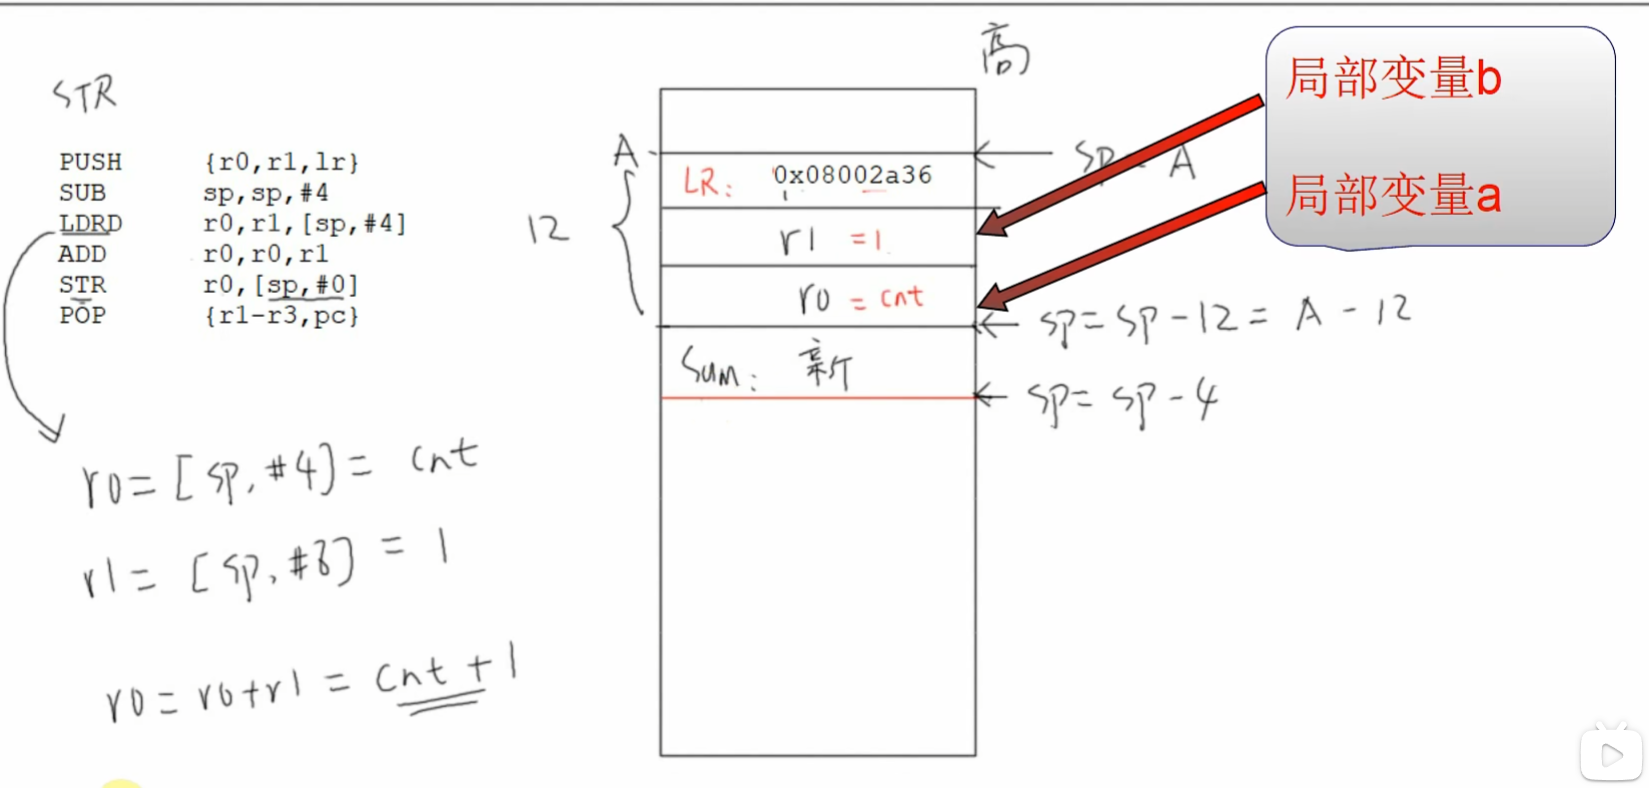 STR
PUSH {r0,r1,lr}
SUB sp,sp,#4
LDRD r0,r1,[sp,#4]
ADD r0,r0,r1
STR r0,[sp,#0]
POP {r1-r3,pc}
r0=[sp,#4]= cnt
r1=[sp,#8]=1
r0=r0+r1=cnt+1
高
A
sp= A
12
LR: 0x08002a36
r1 =1
r0 =cnt
sp=sp-12=A-12
Sum: 新
sp=sp-4
局部变量b
局部变量a